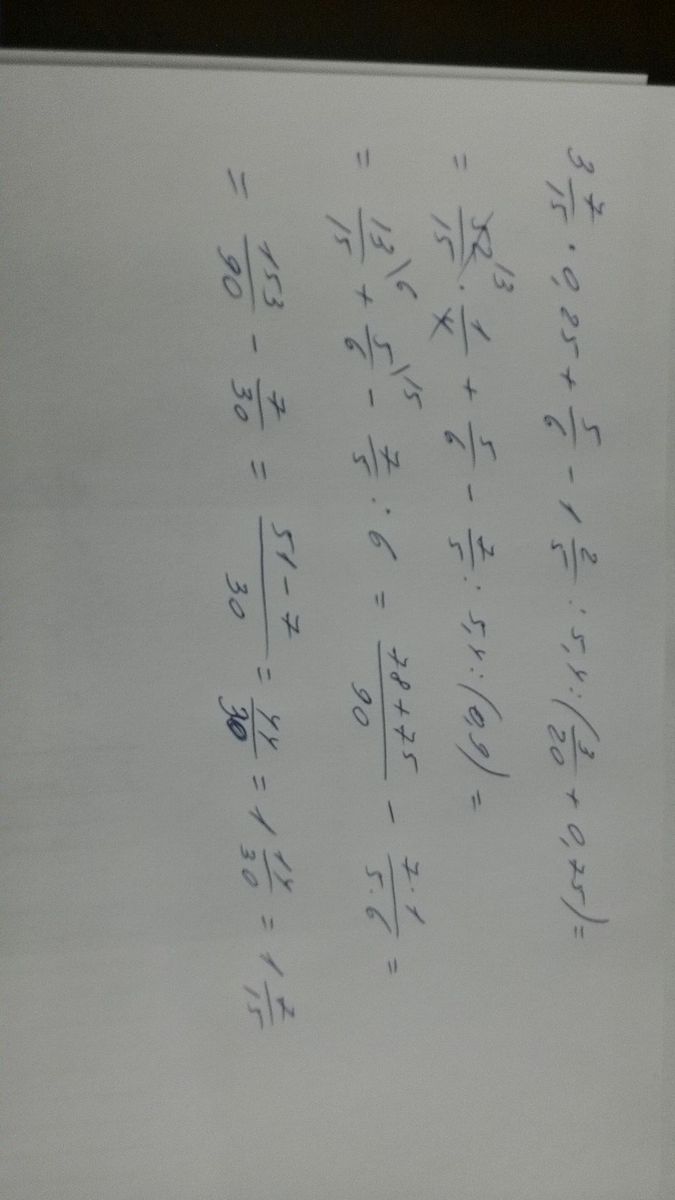 3 7/15 · 0,25 + 5/6 - 1 2/5 : 5,4 : (3/20 + 0,75) =
= 52/15 13 · 1/4 + 5/6 - 7/5 : 5,4 : (0,9) =
= 13\6/15 + 5\15/6 - 7/5 : 6 = 78+75/90 - 7·1/5·6 =
= 153/90 - 7/30 = 51-7/30 = 44/30 = 1 14/30 = 1 7/15